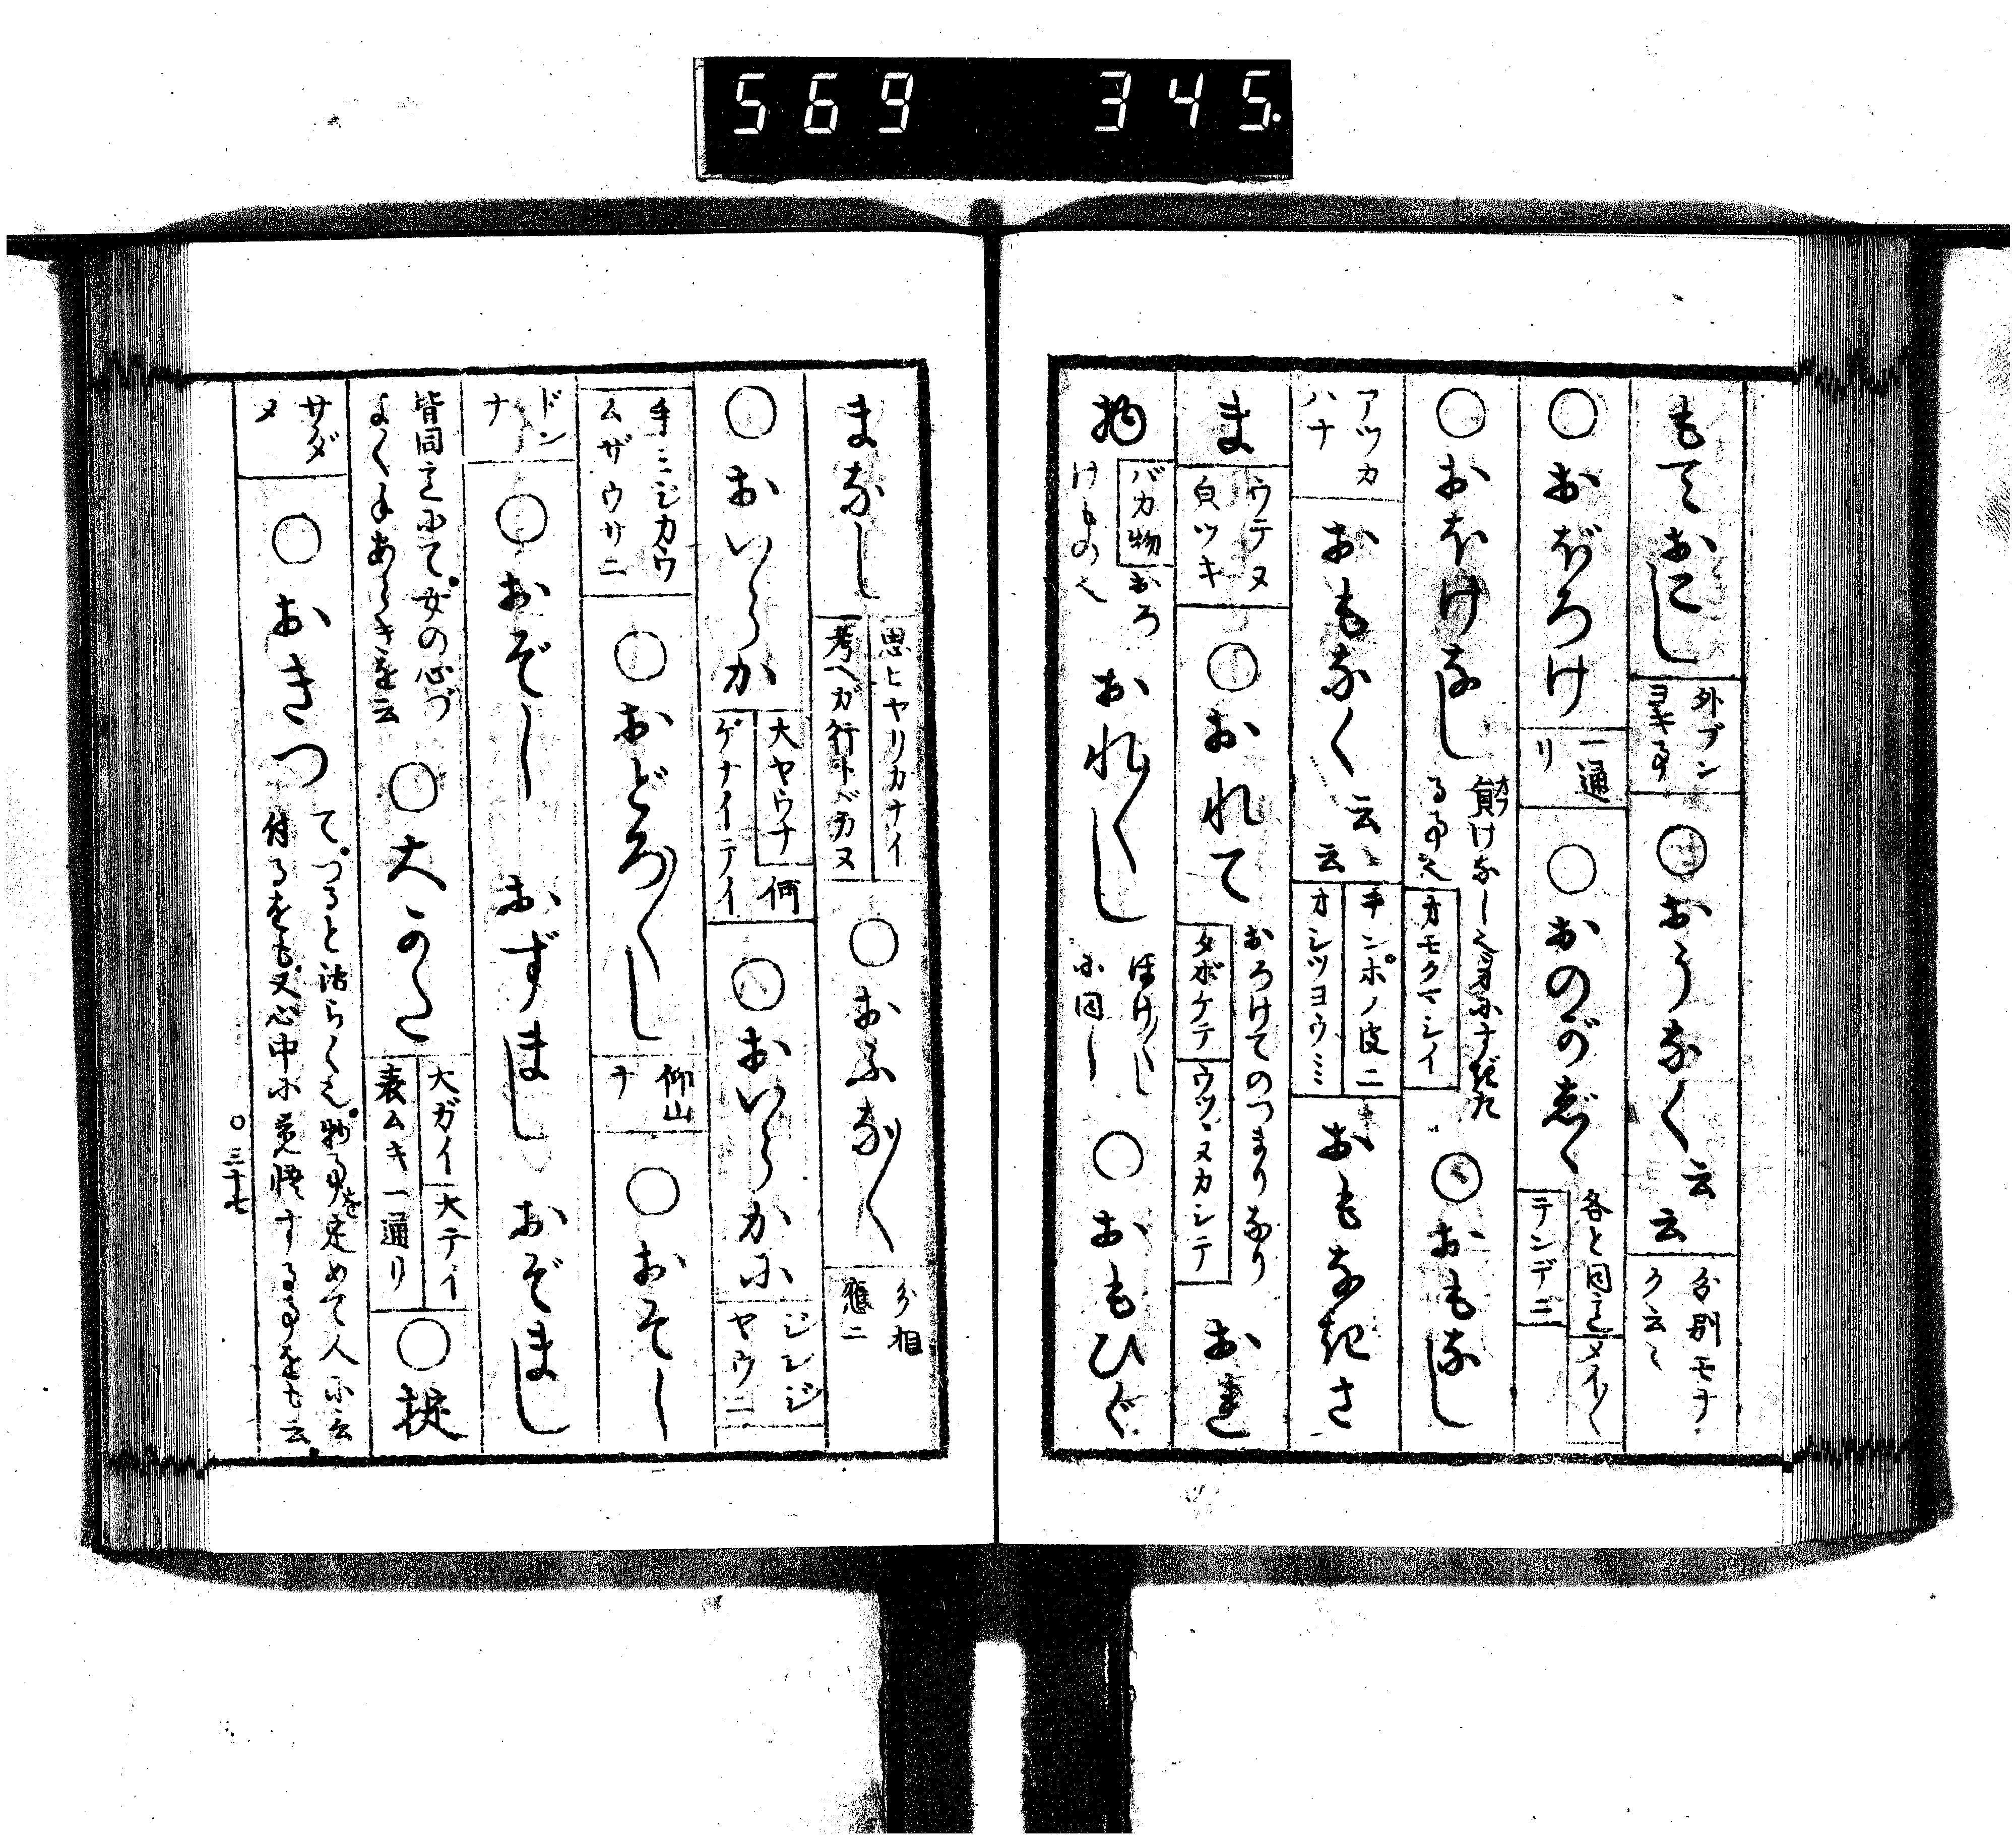 569 345.
もておこし 外ブンヨキ事 ○おうなく云云 分別モナク云々
○おぼろけ 一通リ ○おのがじゝ 各と同じ テンデニ メイ〱
○おほけなし 負けなしといふ オモクマシイ ○おもなし
アツカハナ おもなく云云 手ンポノ皮ニ オシツヨウミミ おもなきさ
ま ウテヌ貞ツキ ○おれて おろけてのつまりなり タボケテ ウツヽヌカシテ おれ
物 バカ物 おろけもの也 おれ〱し ほけ〱しに同し ○おもひぐ
まなし 思ヒヤリカナイ 考ヘガ行トドカヌ ○おふな〱 分相應ニ
○おいらか 大ヤウナ 何ゲナイテイ ○おいらかに ジンジヤウニ
手ミジカウ ムザウサニ ○おどろ〱し 仰山ナ ○おぞし
ドンナ ○おぞし おずまし おぞまし
皆同じにて。女の心づよく手あらきを云 ○大かた 大ガイ 大テイ 表ムキ 一通リ ○掟
サダメ ○おきつ て。つると活らく也。物事を定めて人に云付るをも又心中に覚悟する事をも云。
○三十七